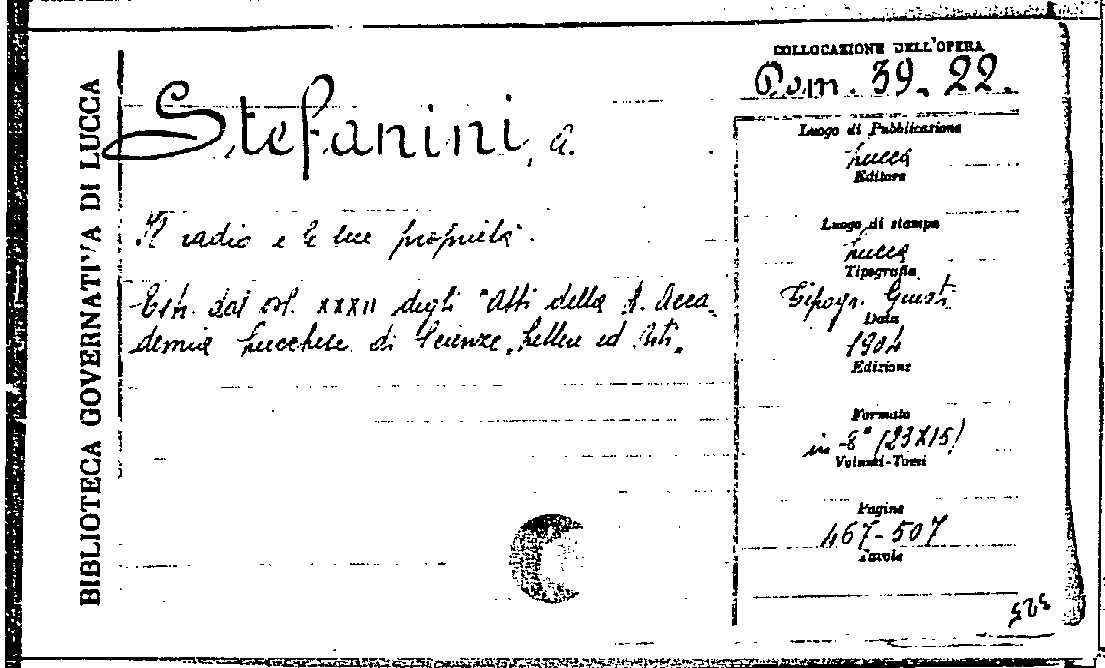 BIBLIOTECA GOVERNATIVA DI LUCCA
Stefanini, a.
Il radio e le sue proprietà.
Estr. dal vol. XXXII degli "Atti della R. Acca-
demia Lucchese di Scienze, Lettere ed Arti„
COLLOCAZIONE DELL'OPERA
39. 22.
Luogo di Pubblicazione
Lucca
Editore
Luogo di stampa
Lucca
Tipografia
Tipogr. Giusti
Data
1904
Edizione
Formato
in -8° (23X15)
Volumi-Tomi
Pagine
467-507
Tavole